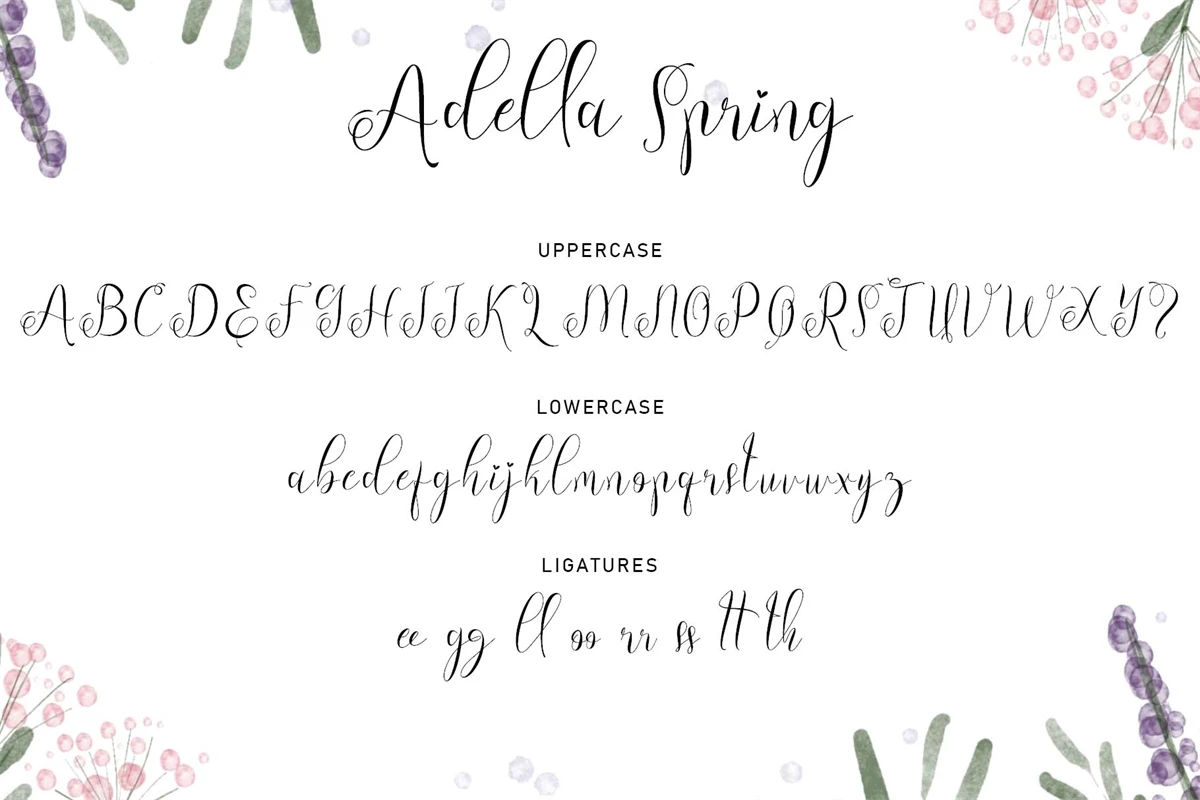 Adella Spring
UPPERCASE
ABCDEFGHIJKLMNOPQRSTUVWXYZ
LOWERCASE
abcdefghijklmnopqrstuvwxyz
LIGATURES
ee gg ll oo rr ss tt th